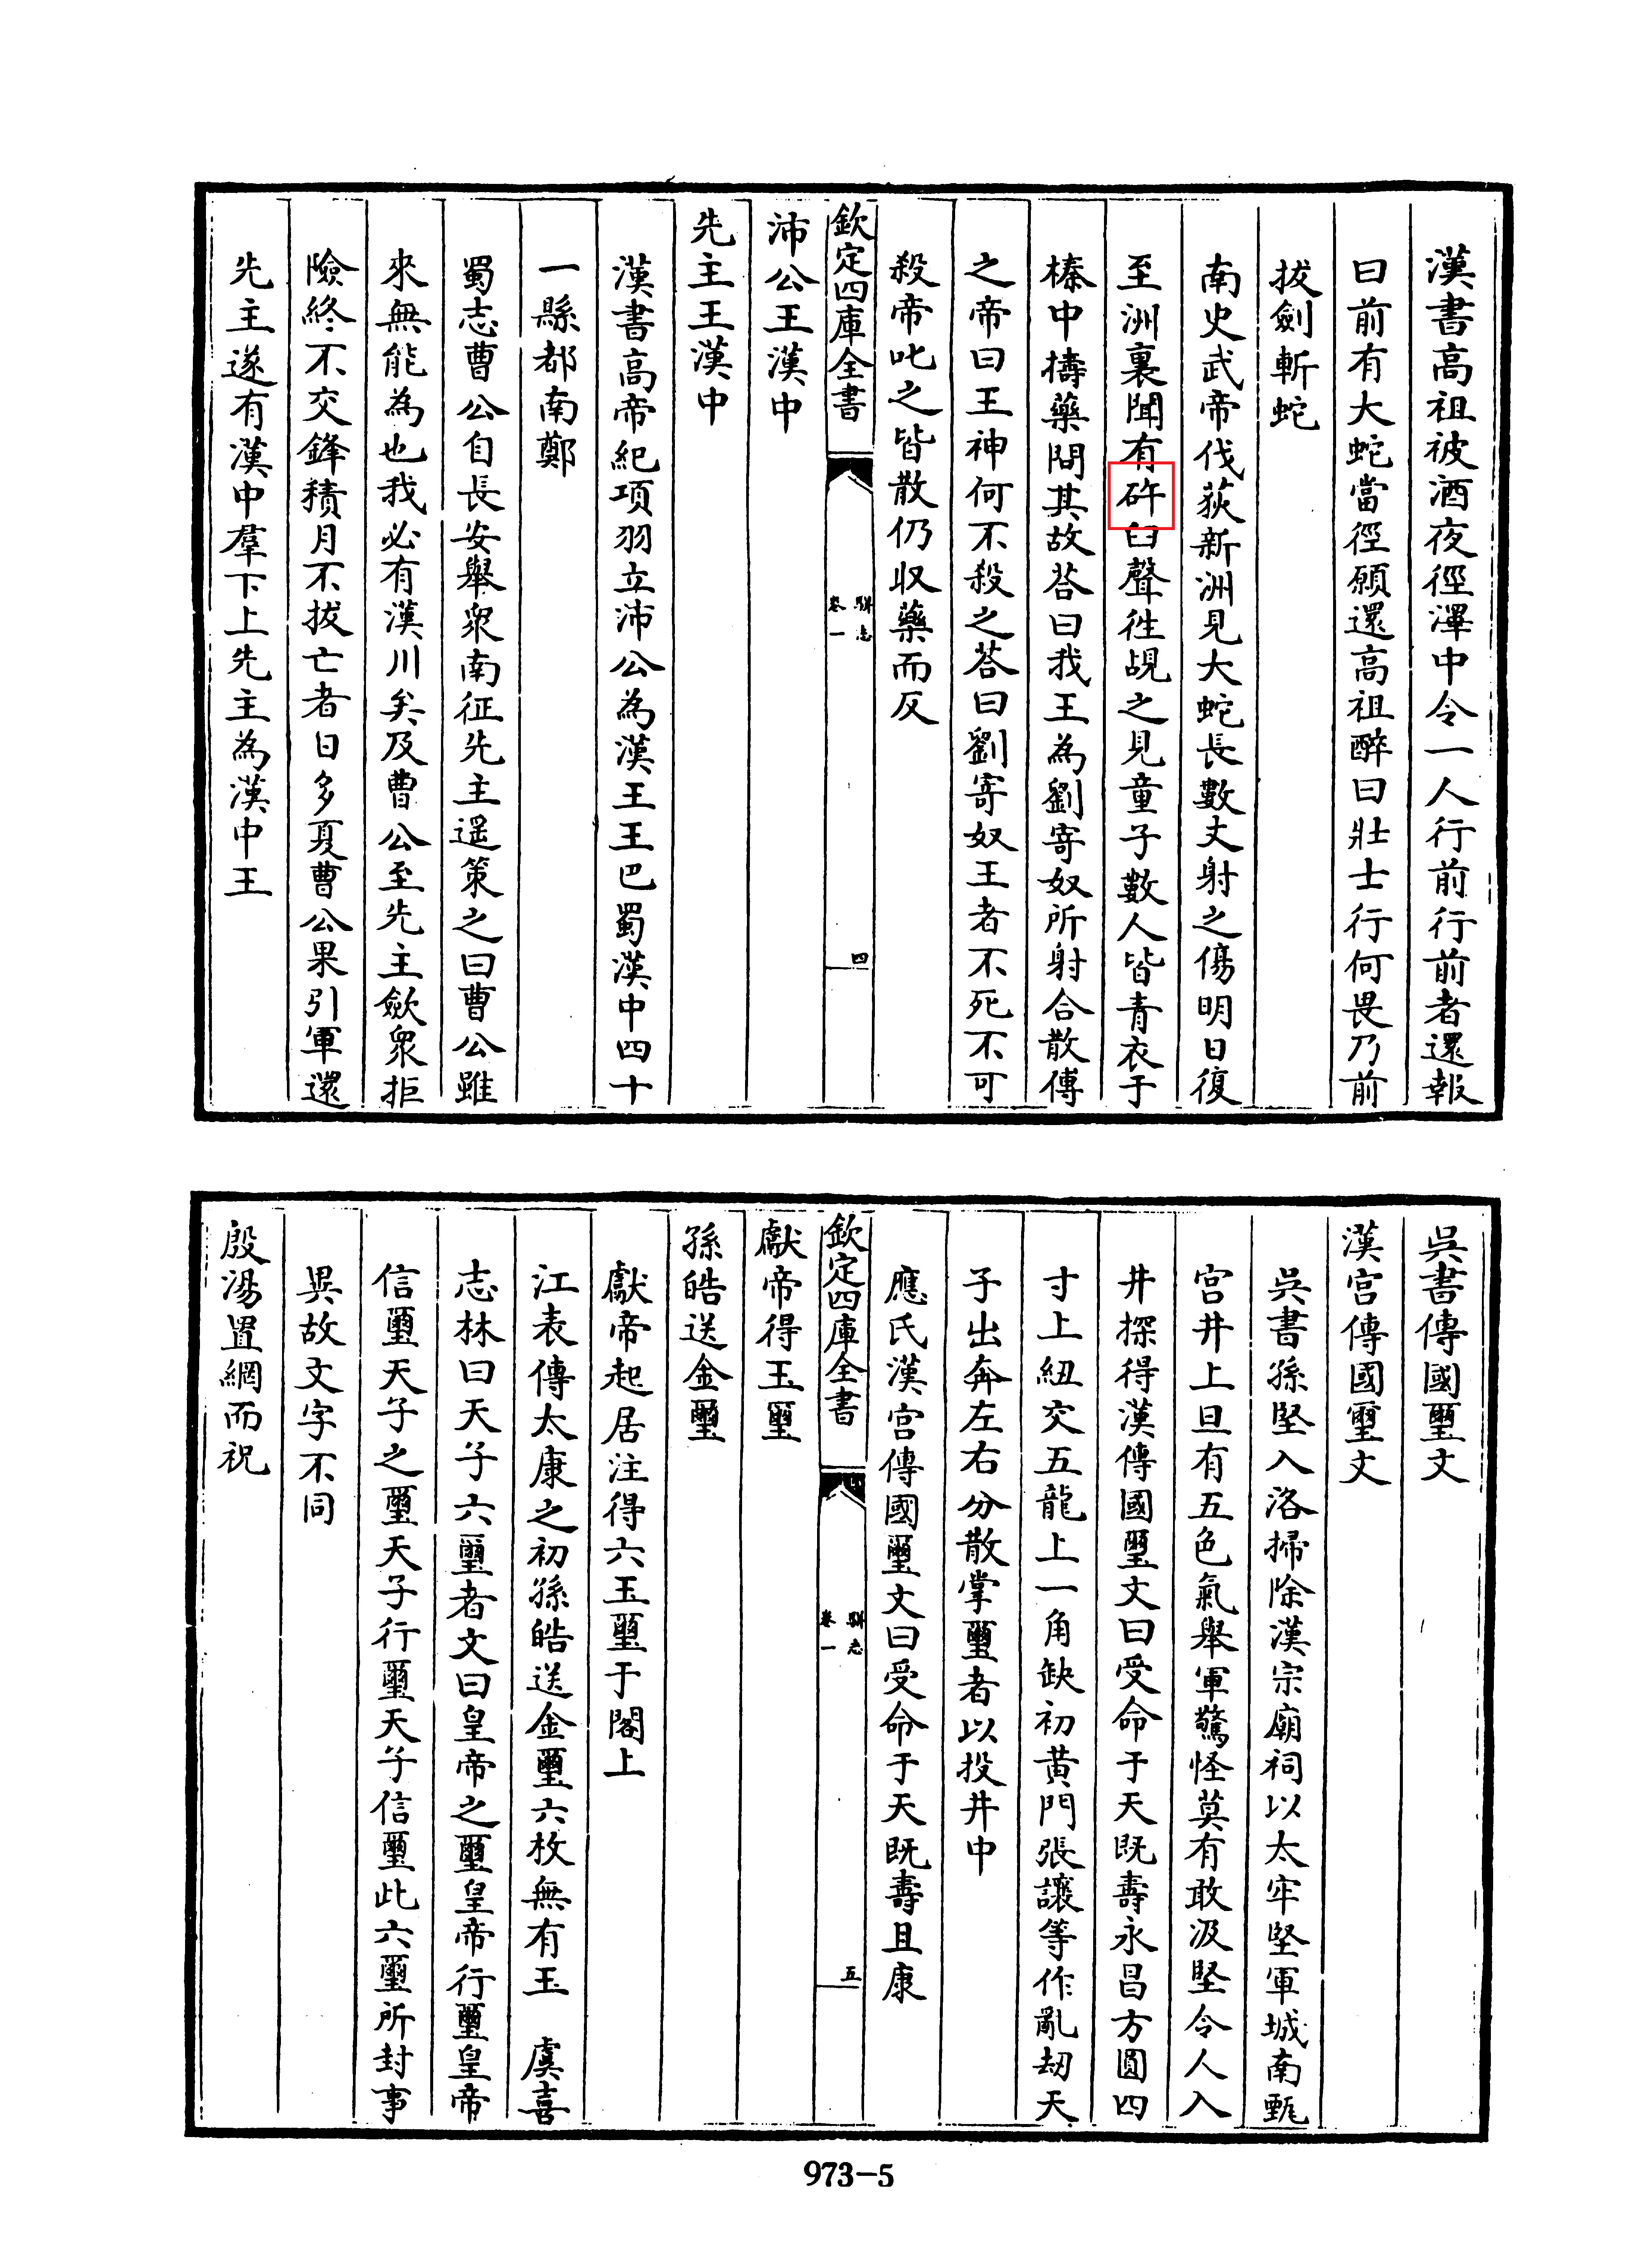 漢書高祖被酒夜徑澤中令一人行前行前者還報
曰前有大蛇當徑願還高祖醉曰壯士行何畏乃前
拔劍斬蛇
南史武帝伐荻新洲見大蛇長數丈射之傷明日復
至洲裏聞有臼聲徃覘之見童子數人皆青衣于
榛中擣藥問其故荅曰我王為劉寄奴所射合散傅
之帝曰王神何不殺之荅曰劉寄奴王者不死不可
殺帝叱之皆散仍収藥而反
欽定四庫全書
駢志
卷一
四
沛公王漢中
先主王漢中
漢書高帝紀項羽立沛公為漢王王巴蜀漢中四十
一縣都南鄭
蜀志曹公自長安舉衆南征先主遥策之曰曹公雖
來無能為也我必有漢川矣及曹公至先主歛衆拒
險終不交鋒積月不拔亡者日多夏曹公果引軍還
先主遂有漢中羣下上先主為漢中王
吳書傳國璽文
漢宫傳國璽文
吳書孫堅入洛掃除漢宗廟祠以太牢堅軍城南甄
宫井上旦有五色氣舉軍驚怪莫有敢汲堅令人入
井探得漢傳國璽文曰受命于天既壽永昌方圓四
寸上紐交五龍上一角缺初黄門張讓等作亂刼天
子出奔左右分散掌璽者以投井中
應氏漢宫傳國璽文曰受命于天既壽且康
欽定四庫全書
駢志
卷一
五
獻帝得玉璽
孫皓送金璽
獻帝起居注得六玉璽于閣上
江表傳太康之初孫皓送金璽六枚無有玉　虞喜
志林曰天子六璽者文曰皇帝之璽皇帝行璽皇帝
信璽天子之璽天子行璽天子信璽此六璽所封事
異故文字不同
殷湯置網而祝
973-5